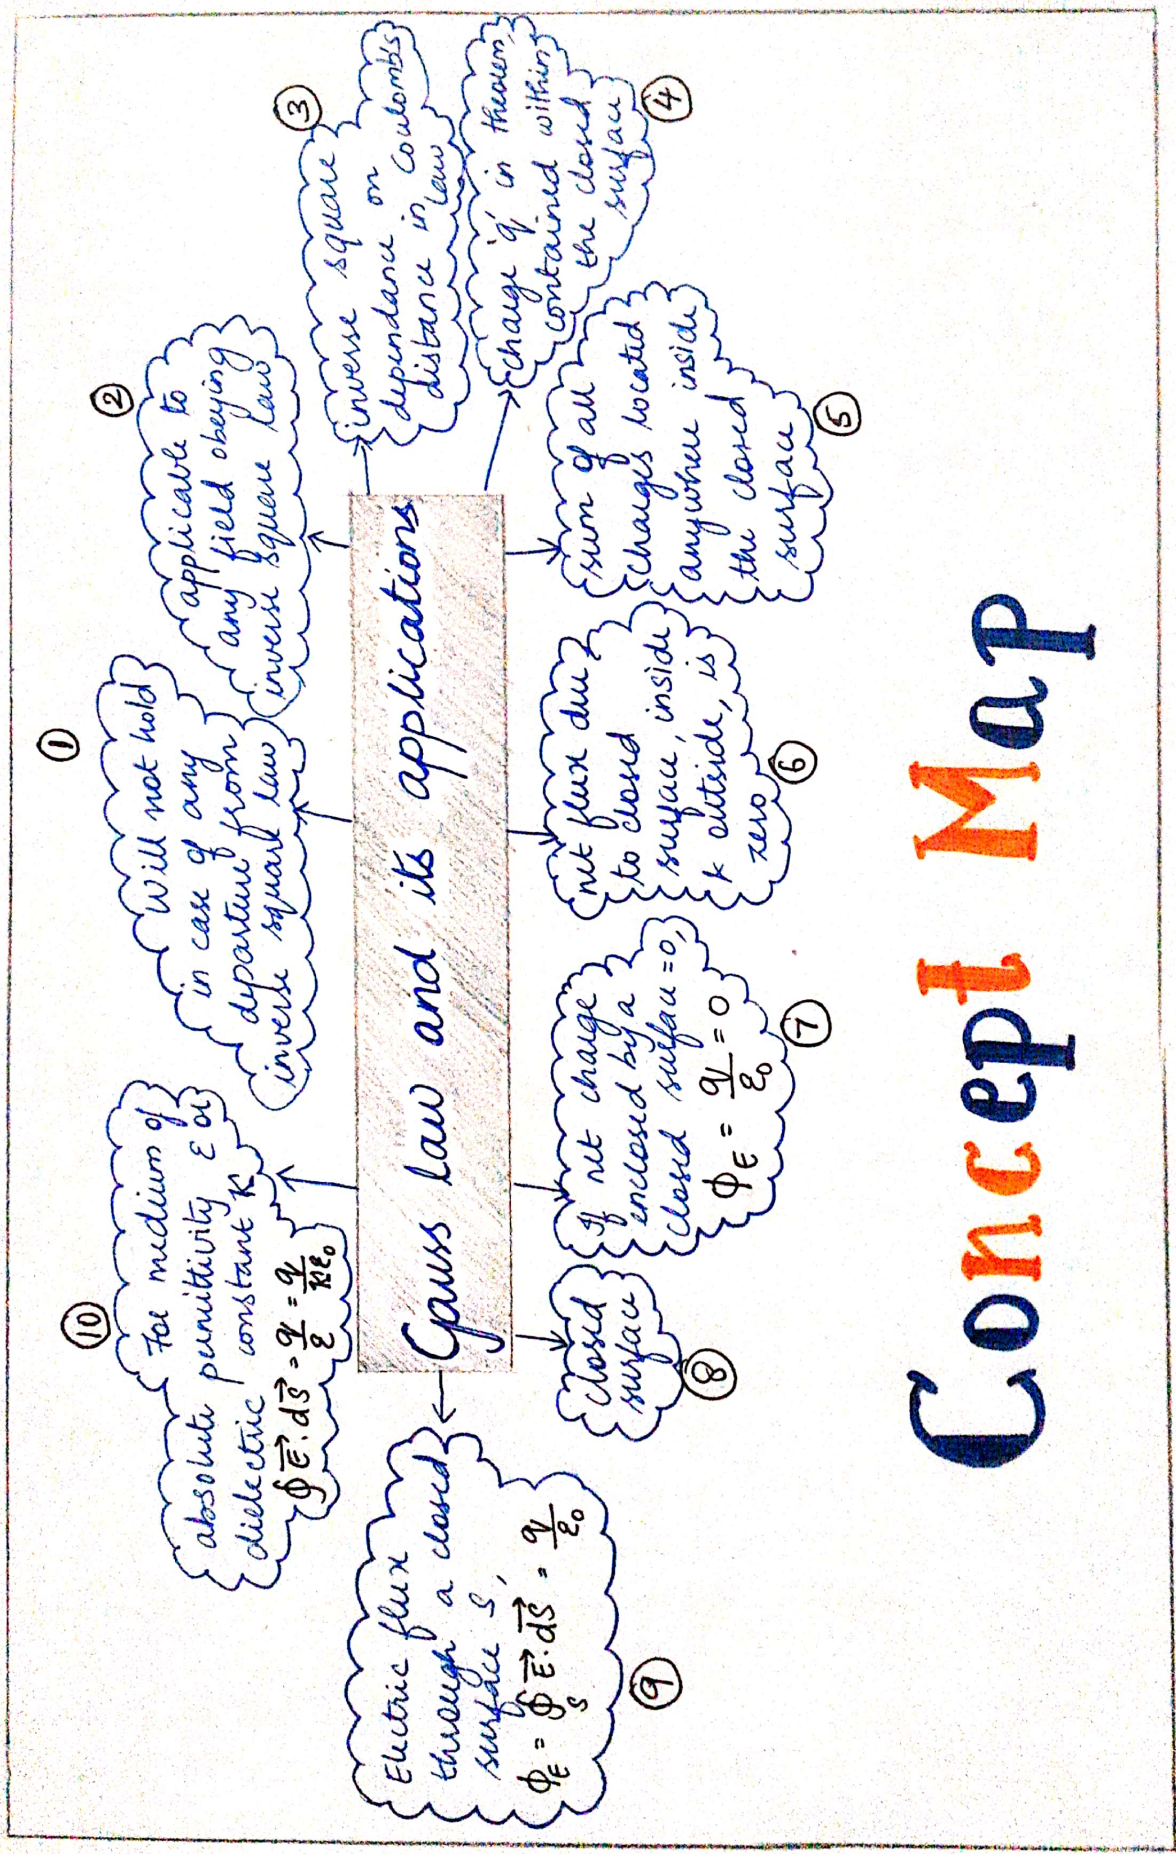 ①
Will not hold
in case of any
departure from
inverse square law
②
applicable to
any field obeying
inverse square law
③
inverse square
dependance on
distance in Coulomb's
law
④
charge 'q' in theorem,
contained within
the closed
surface
⑤
sum of all
charges located
anywhere inside
the closed
surface
⑥
net flux due
to closed
surface, inside
& outside, is
zero
⑦
If net charge
enclosed by a
closed surface = 0,
ϕE = q/ε₀ = 0
⑧
closed
surface
⑨
Electric flux
through a closed
surface S,
ϕE = ∮S E⃗.dS⃗ = q/ε₀
⑩
For medium of
absolute permittivity ε or
dielectric constant K
∮E⃗.dS⃗ = q/ε = q/Kε₀
Gauss law and its applications
Concept Map